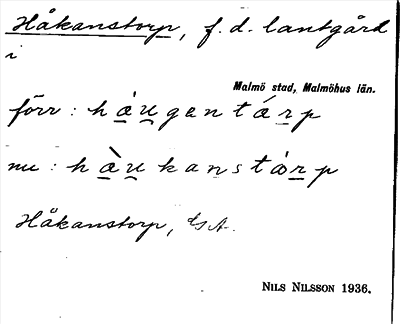 Håkanstorp, f. d. lantgård
i
Malmö stad, Malmöhus län.
förr: hàu̯gantárp
nu: hàu̯kanstȧrp
Håkanstorp,
NILS NILSSON 1936.